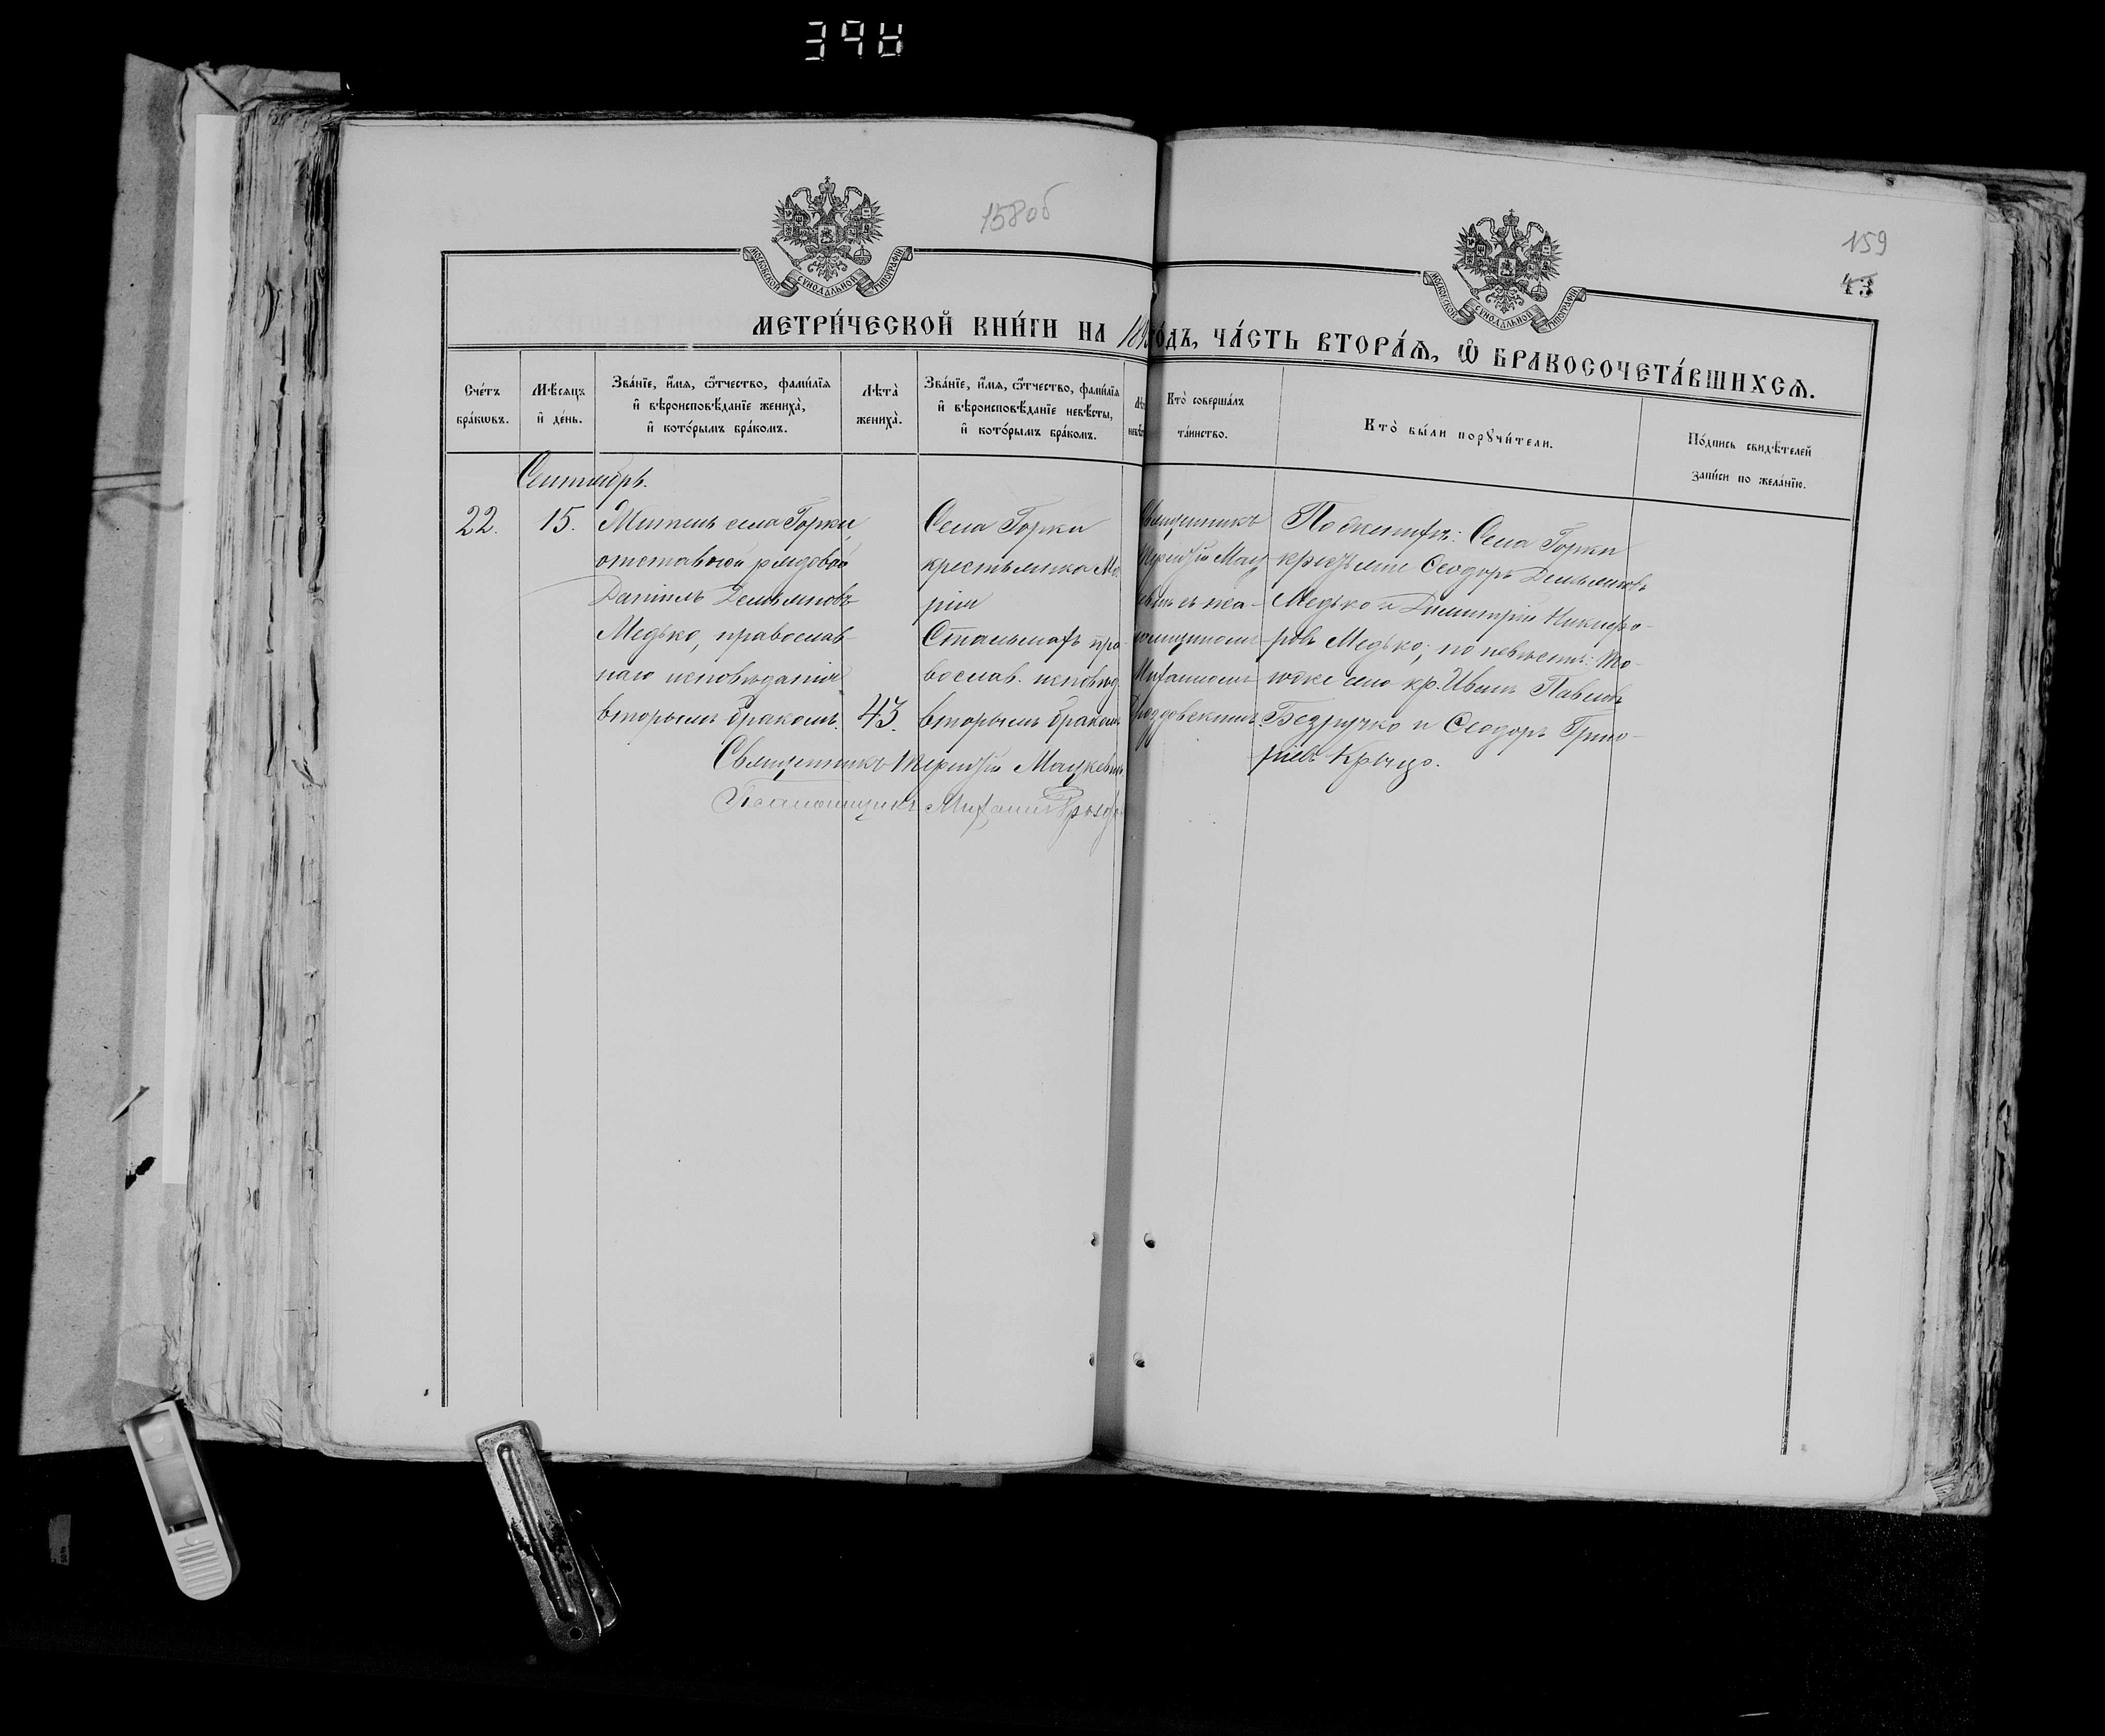 398
158об
159
43
МОСКОВСКОЙ СѴНОДАЛЬНОЙ ТИПОГРАФІИ
МОСКОВСКОЙ СѴНОДАЛЬНОЙ ТИПОГРАФІИ
МЕТРИ́ЧЕСКОЙ КНИ́ГИ НА ГО́ДЪ, ЧА́СТЬ ВТОРА́Я, Ѽ БРАКОСОЧЕТА́ВШИХСЯ.
Сче́тъ бра́кѡвъ.
Мѣ́сяцъ и҆ де́нь.
Зва́нїе, и҆́мя, ѻ҆́тчество, фами́лїя и҆ вѣроисповѣ́данїе жениха̀, и҆ кото́рымъ бра́комъ.
Лѣта̀ жениха̀.
Зва́нїе, и҆́мя, ѻ҆́тчество, фами́лїя и҆ вѣроисповѣ́данїе невѣ́сты, и҆ кото́рымъ бра́комъ.
Кто̀ соверша́лъ та́инство.
Кто̀ бы́ли порꙋчи́тели.
По́дпись свидѣ́телей за́писи по жела́нїю.
Сентябрь.
22.
15.
Житель села Горки,
отставной рядовой
Даніилъ Демьяновъ
Медько, православ-
наго исповѣданія
вторымъ бракомъ.
43.
Села Горки
крестьянка Ма-
рія
Стальмахъ пра-
вослав. исповѣд.
вторымъ бракомъ
Священникъ
Терентій Мац
съ пса-
ломщикомъ
Михаиломъ
По женихѣ: Села Горки
крестьяне Ѳеодоръ Демьяновъ
Медько и Димитрій Никифо-
ровъ Медько; по невѣстѣ: то-
гоже села кр. Иванъ Павловъ
Безручко и Ѳеодоръ Григо-
ріевъ
Священникъ Терентій Мацкевичъ
Псаломщикъ Михаилъ